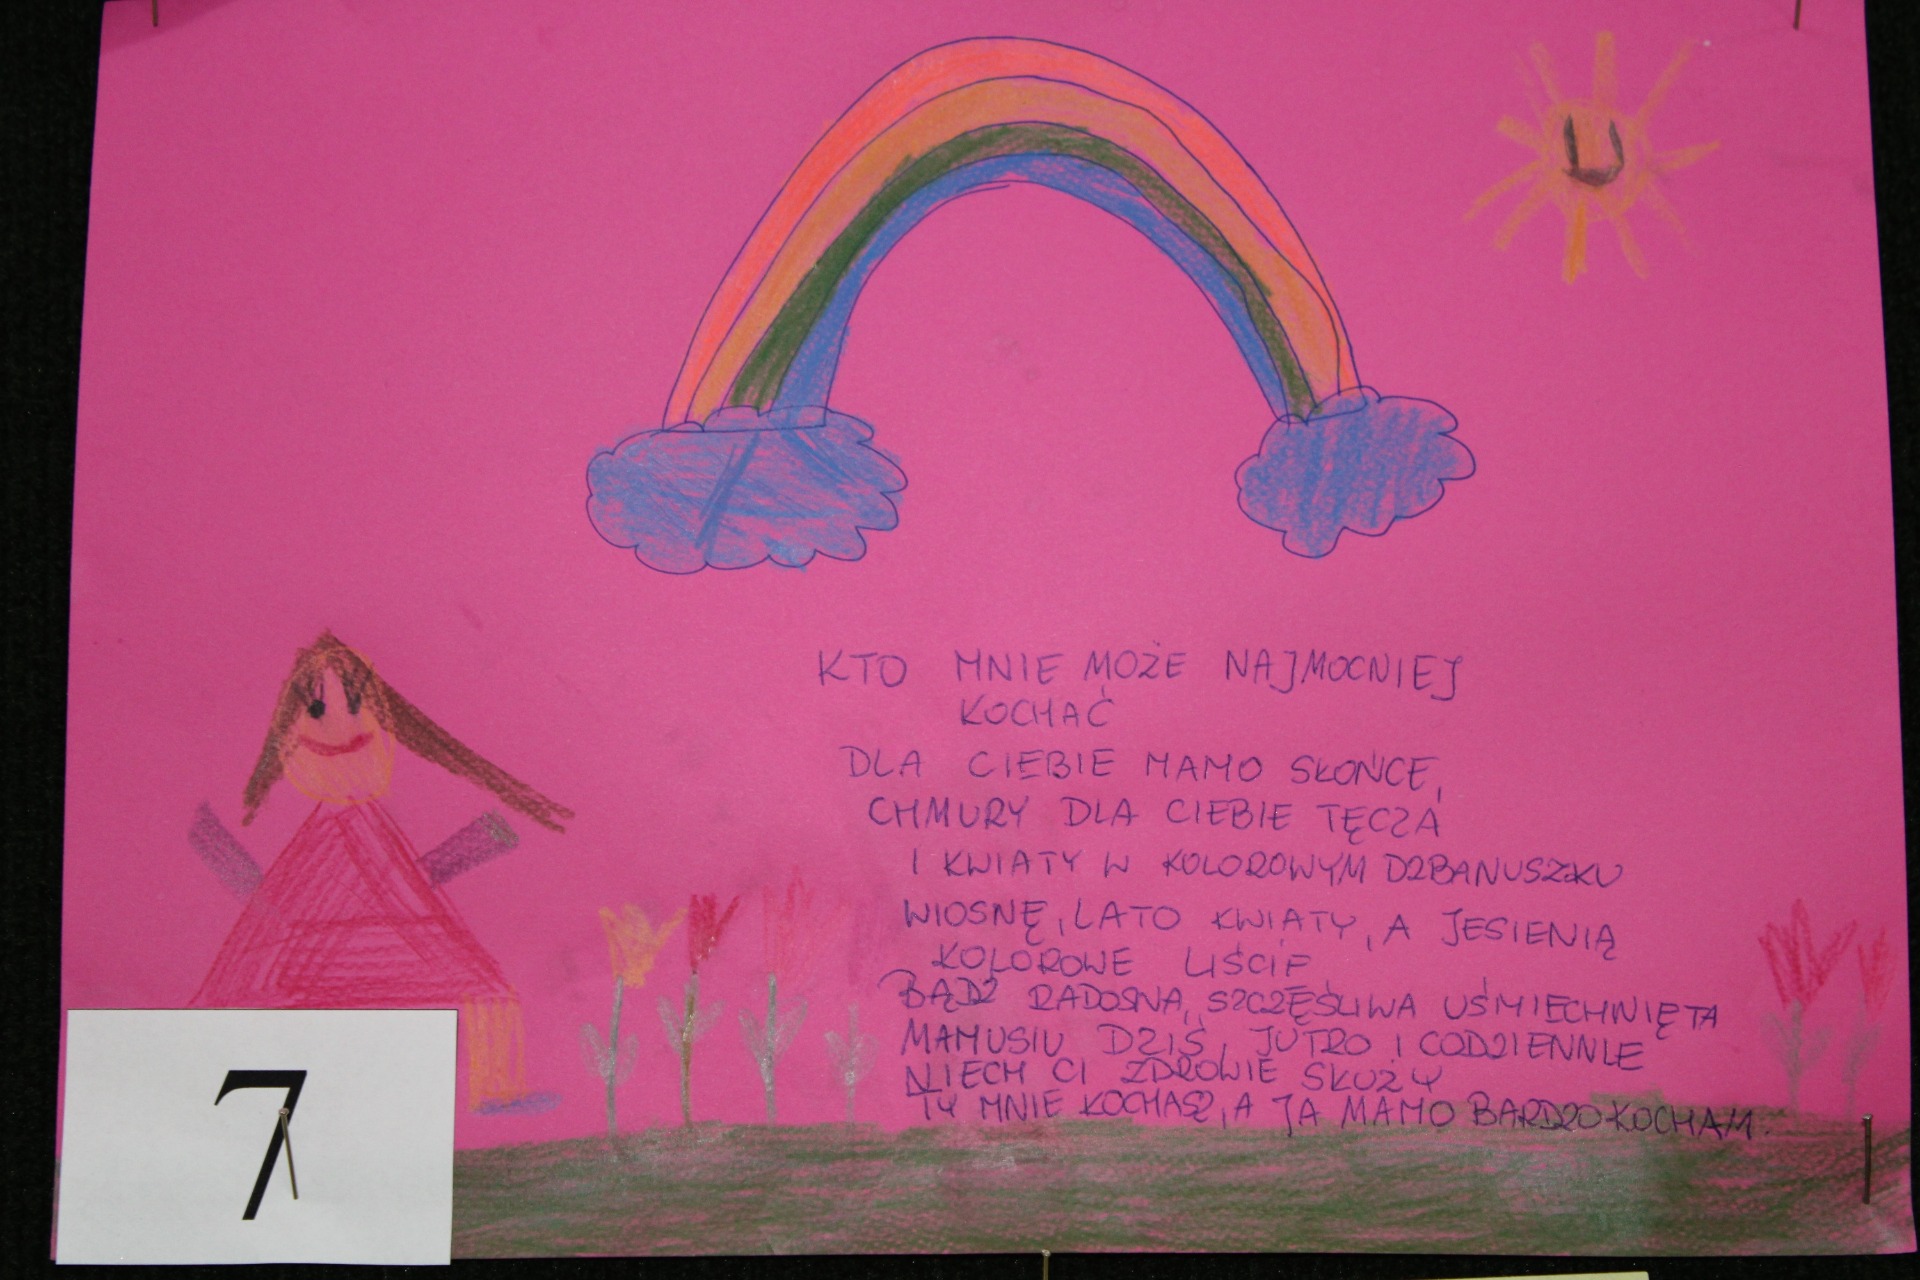 KTO MNIE MOŻE NAJMOCNIEJ
KOCHAĆ
DLA CIEBIE MAMO SŁOŃCE,
CHMURY DLA CIEBIE TĘCZA
I KWIATY W KOLOROWYM DZBANUSZKU
WIOSNĘ, LATO KWIATY, A JESIENIĄ
KOLOROWE LIŚCIE
BĄDZ RADOSNA, SZCZĘŚLIWA UŚMIECHNIĘTA
MAMUSIU DZIŚ, JUTRO I CODZIENNIE
NIECH CI ZDROWIE SŁUŻY
TY MNIE KOCHASZ, A JA MAMO BARDZO KOCHAM.
7